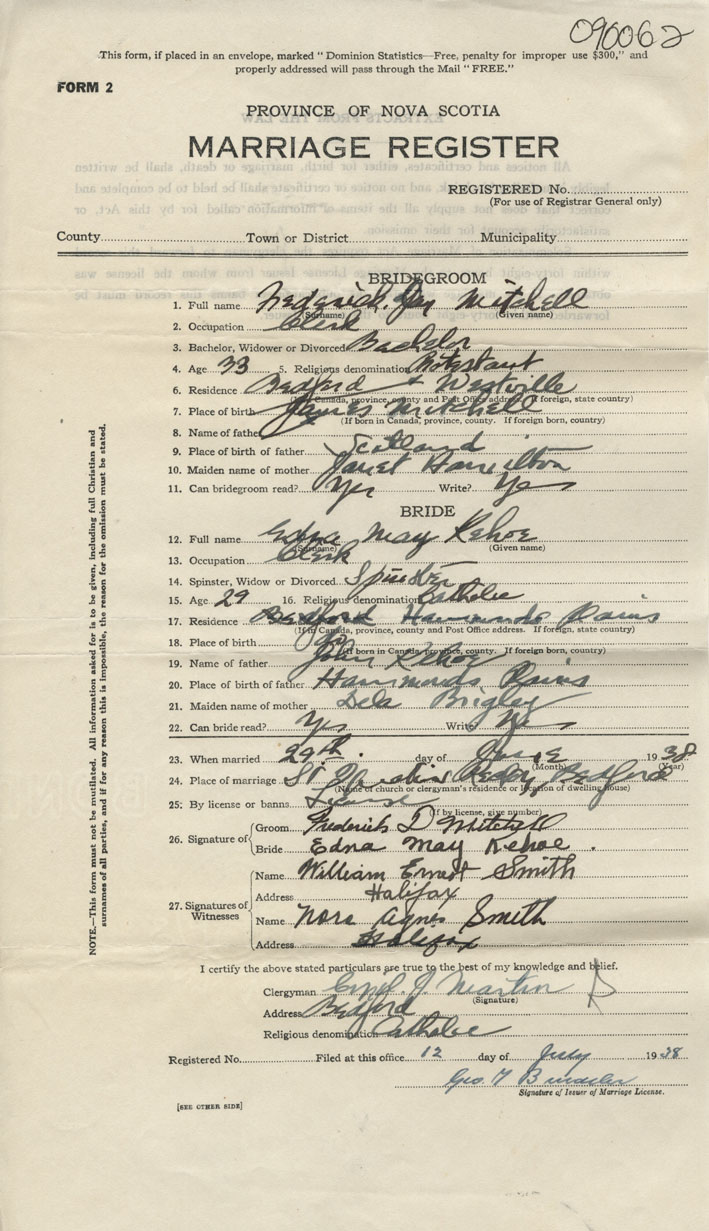 090062
This form, if placed in an envelope, marked "Dominion Statistics—Free, penalty for improper use $300," and
properly addressed will pass through the Mail "FREE."
FORM 2
PROVINCE OF NOVA SCOTIA
MARRIAGE REGISTER
REGISTERED No.
(For use of Registrar General only)
County Town or District Municipality
BRIDEGROOM
1. Full name Frederick Mitchell
(Surname) (Given name)
2. Occupation Clerk
3. Bachelor, Widower or Divorced Bachelor
4. Age 33 5. Religious denomination Protestant
6. Residence Bedford + Westville
(If in Canada, province, county and Post Office address. If foreign, state country)
7. Place of birth James Mitchell
(If born in Canada, province, county. If foreign born, country)
8. Name of father
9. Place of birth of father Scotland
10. Maiden name of mother Janet Hamilton
11. Can bridegroom read? Yes Write? Yes
BRIDE
12. Full name Edna May Kehoe
(Surname) (Given name)
13. Occupation Clerk
14. Spinster, Widow or Divorced Spinster
15. Age 29 16. Religious denomination Catholic
17. Residence Bedford Hammonds Plains
(If in Canada, province, county and Post Office address. If foreign, state country)
18. Place of birth
(If born in Canada, province, county. If foreign born, country)
19. Name of father John Kehoe
20. Place of birth of father Hammonds Plains
21. Maiden name of mother Brigley
22. Can bride read? Yes Write?
23. When married 29th day of June 1938
(Month) (Year)
24. Place of marriage St Bedford
(Name of church or clergyman's residence or location of dwelling house)
25. By license or banns License
(If by license, give number)
26. Signature of Groom Frederick D Mitchell
Bride Edna May Kehoe.
27. Signatures of Witnesses Name William Ernest Smith
Address Halifax
Name Nora Agnes Smith
Address Halifax
I certify the above stated particulars are true to the best of my knowledge and belief.
Clergyman Cyril J. Martin
(Signature)
Address Bedford
Religious denomination Catholic
Registered No. Filed at this office 12 day of July 1938
Geo. T
Signature of Issuer of Marriage License.
[SEE OTHER SIDE]
NOTE.—This form must not be mutilated. All information asked for is to be given, including full Christian and
surnames of all parties, and if for any reason this is impossible, the reason for the omission must be stated.